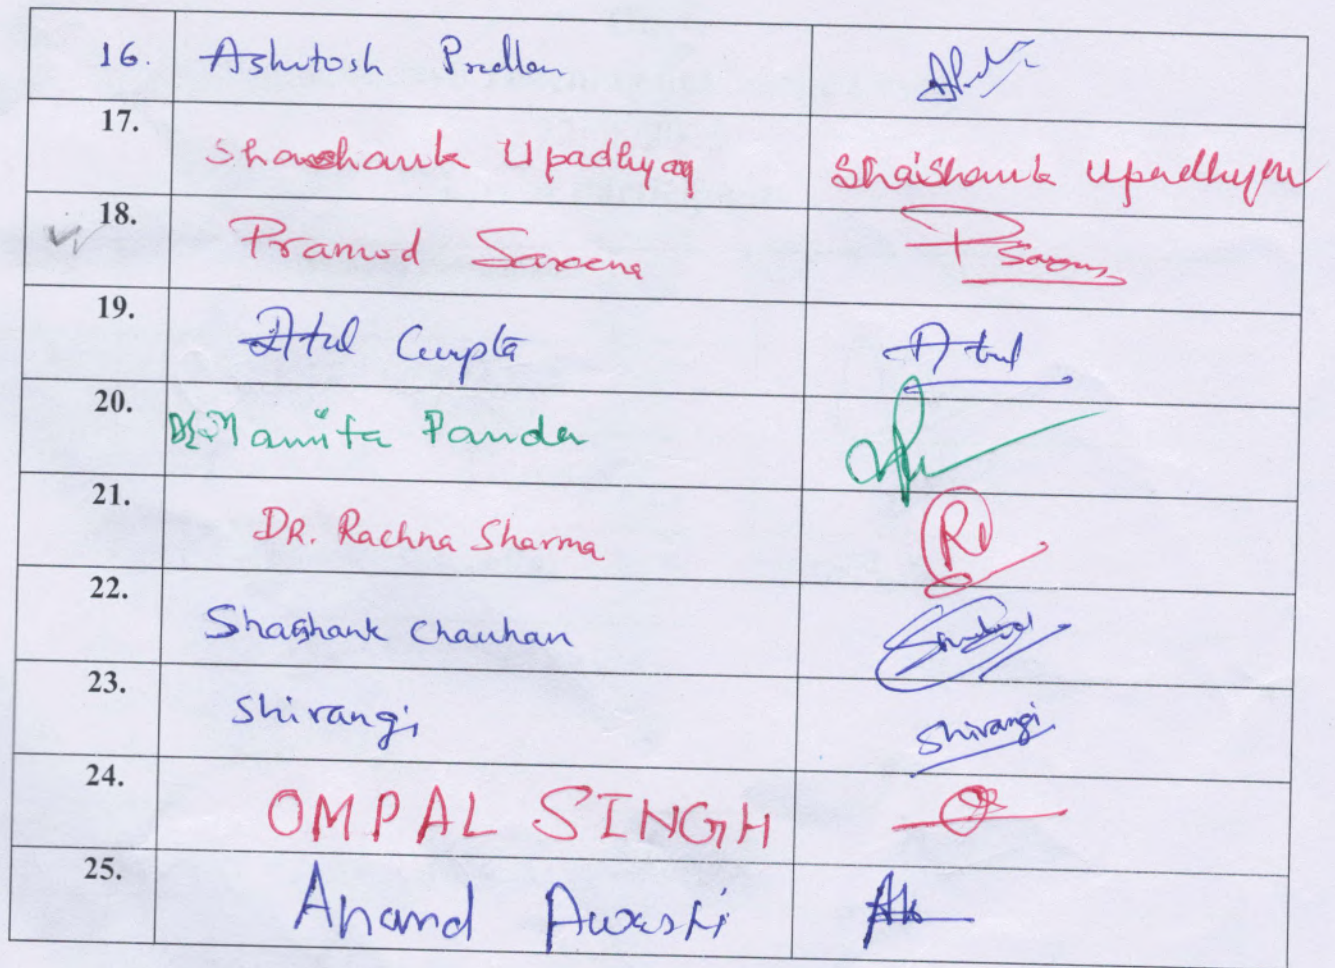 16. Ashutosh Pradhan
17. Shashank Upadhyay Shaishank Upadhyay
18. Pramod Saxena P Saxena
19. Atul Gupta Atul
20. Dr. Mamita Panda
21. DR. Rachna Sharma
22. Shashank Chauhan
23. Shirangi Shirangi
24. OMPAL SINGH
25. Anand Awasti